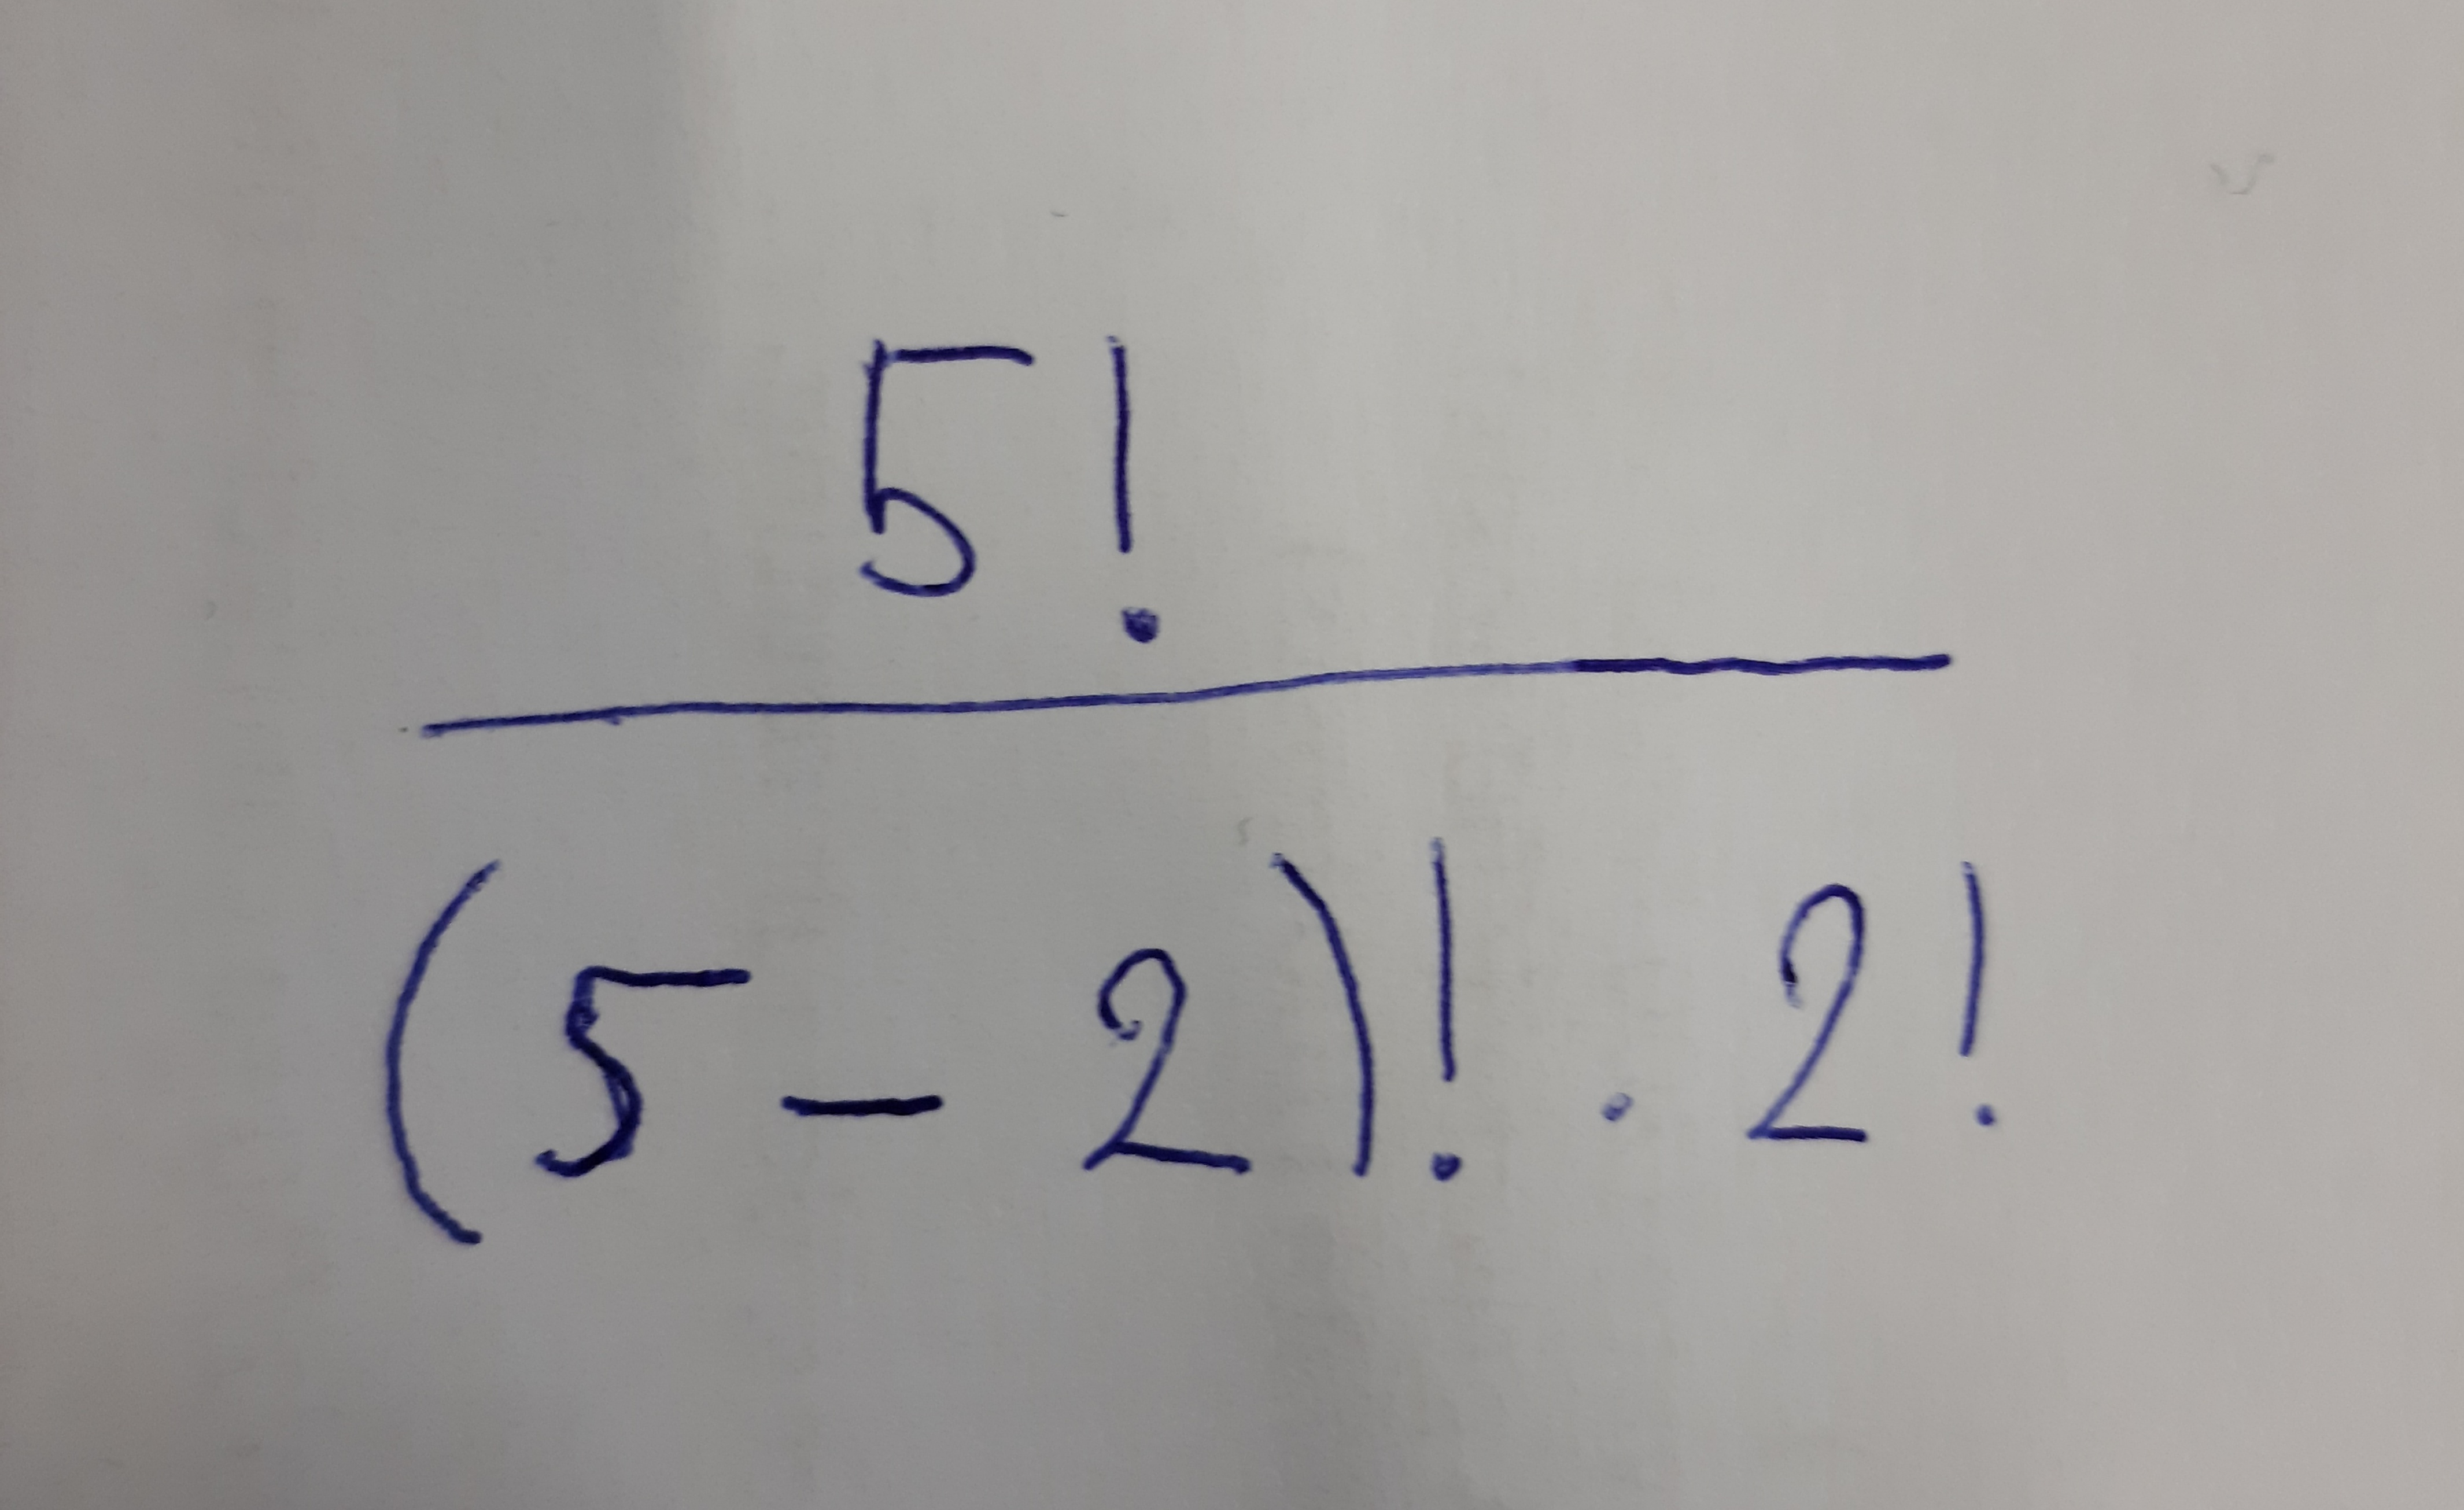 5!
(5 - 2)! . 2!